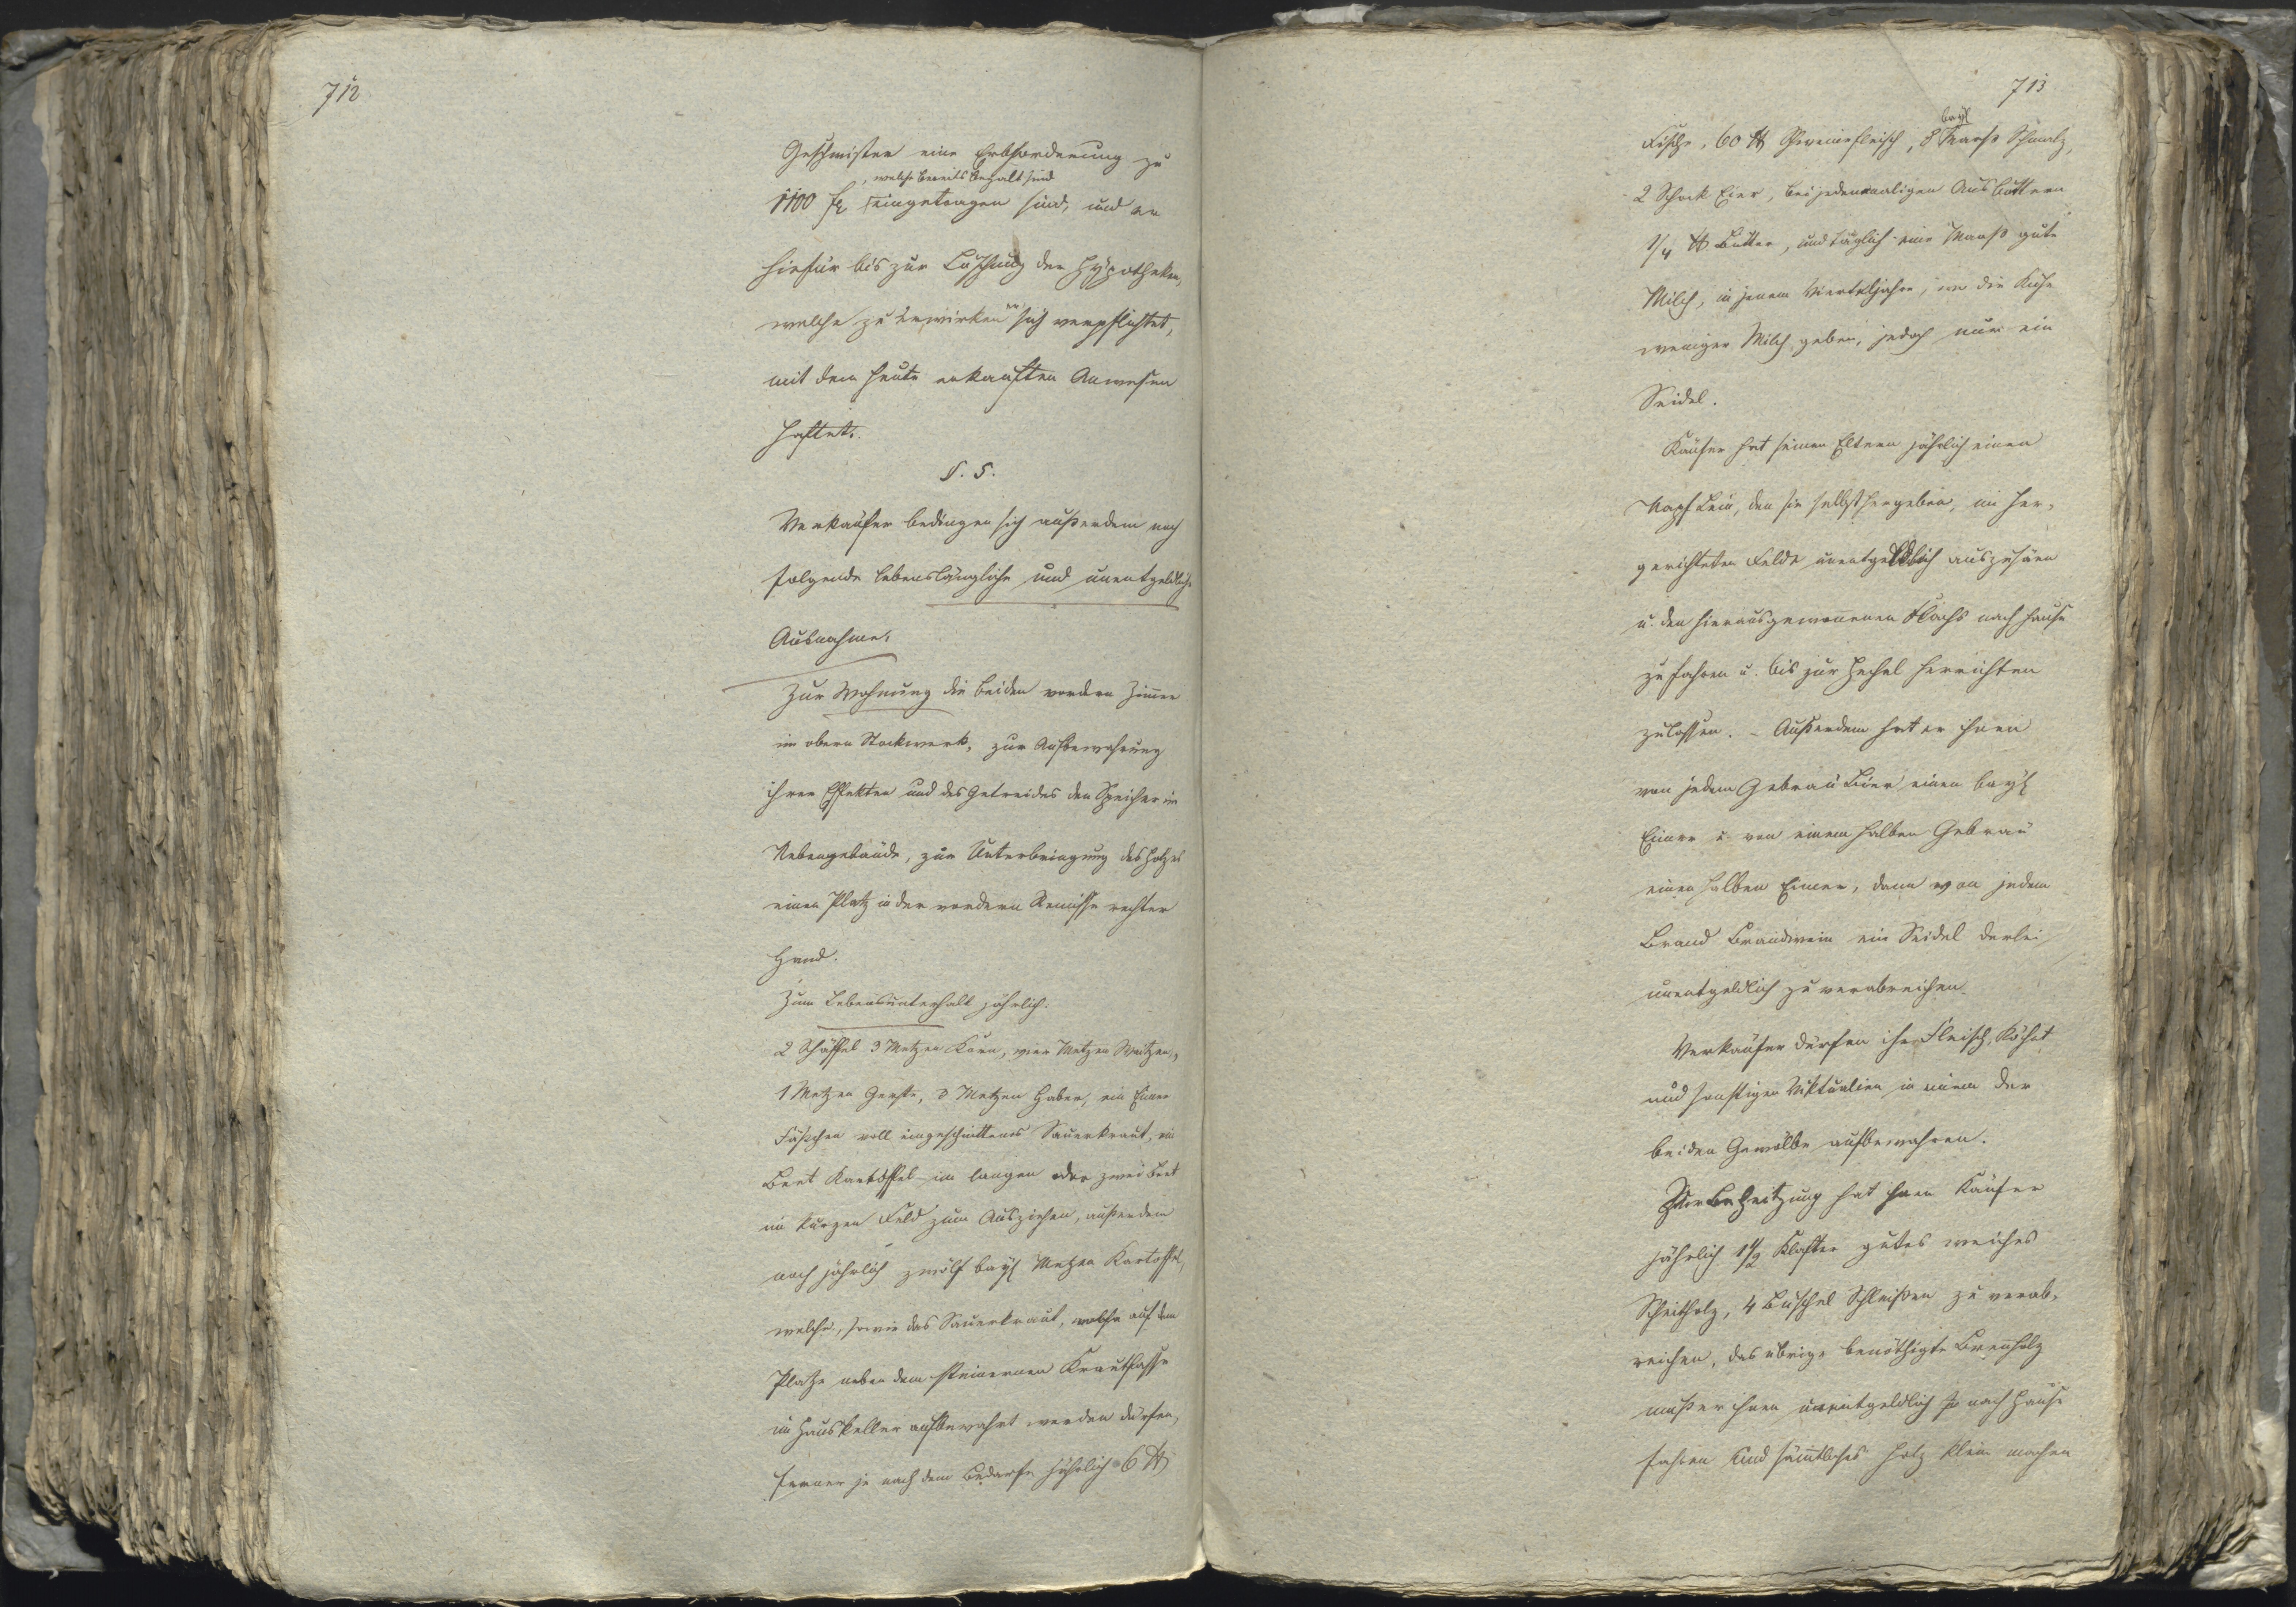 712
Geschwister eine Erbsforderung zu
, welche bereits bezalt sind
1100 fl eingetragen sind, und er
hiefür bis zur Löschung der Hypotheken,
welche zu erwirken er sich verpflichtet,
mit dem heute erkauften Anwesen
haftet.
§. 5.
Verkäufer bedingen sich außerdem noch
folgende lebenslängliche und unentgeldliche
Ausnahme:
Zur Wohnung die beiden vordern Zimmer
im obern Stockwerk, zur Aufbewahrung
ihrer Effekten und des Getreides den Speicher im
Nebengebäude, zur Unterbringung des Holzes
einen Platz in der vordern Remisse rechter
Hand.
Zum Lebensunterhalt jährlich:
2 Schäffel 3 Metzen Korn, vier Metzen Waitzen,
1 Metzen Gerste, 3 Metzen Haber, ein Eimer
Fäßchen voll eingeschnittenes Sauerkraut, ein
Beet Kartoffel im langen oder zwei Beet
im kurzen Feld zum Ausziehen, außerdem
noch jährlich zwölf bay. Metzen Kartoffel,
welche, sowie das Sauerkraut, welche auf dem
Platze neben dem steinernen Krautfasse
im Hauskeller aufbewahrt werden dürfen,
ferner je nach dem Bedarfe jährlich 6 ℔
713
bay.
Fische, 60 ℔ Schweinefleisch, 8 Maaß Schmalz,
2 Schock Eier, bei jedesmaligen Ausbuttern
1/4 ℔ Butter, und täglich eine Maaß gute
Milch, in jenem Vierteljahre, wo die Kühe
weniger Milch geben, jedoch nur ein
Seidel.
Käufer hat seinen Eltern jährlich einen
Napf Lein, den sie selbst hergeben, im her-
gerichteten Felde unentgeldlich auszusäen
u. den hieraus gewonnenen Flachs nach Hause
zu fahren u. bis zur Hechel herrichten
zu lassen. - Außerdem hat er ihnen
von jedem Gebräu Bier einen bay.
Eimer u. von einem halben Gebräu
einen halben Eimer, dann von jedem
Brand Brandwein ein Seidel derlei
unentgeldlich zu verabreichen.
Verkäufer dürfen ihr Fleisch, Köhet
und sonstigen Viktualien in einem der
beiden Gewölbe aufbewahren.
Zur Beheitzung hat ihnen Käufer
jährlich 1 1/2 Klafter gutes weiches
Scheitholz, 4 Buschel Schleißen zu verab-
reichen, das übrige benöthigte Brennholz
muß er ihnen unentgeldlich nach Hause
fahren und sämtliches Holz klein machen